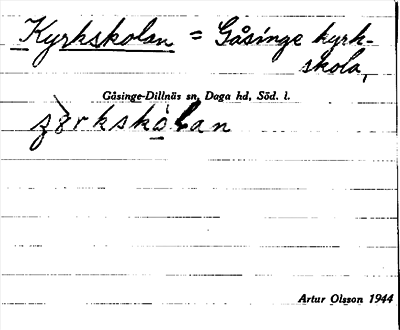 Kyrkskolan = Gåsinge kyrk-
skola,
Gåsinge-Dillnäs sn, Daga hd, Söd. l.
Artur Olsson 1944